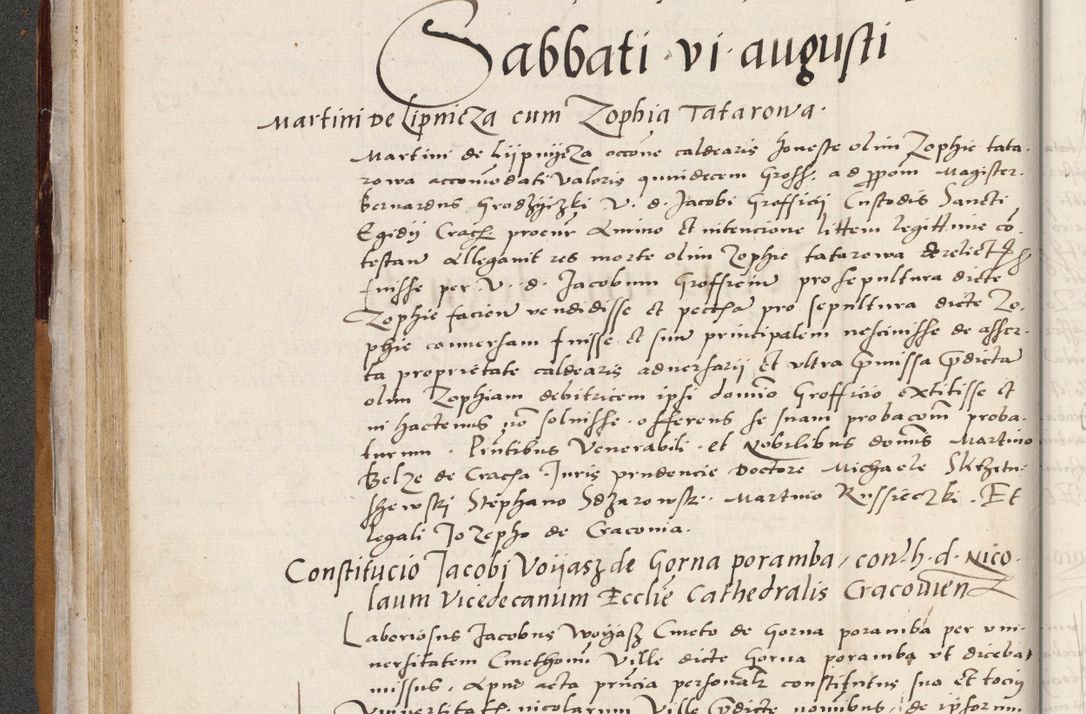 Sabbati vi augusti
Martini de Lipnicza cum Zophia Tatarowa.
Martini de Lyipnyicza occone caldearis honeste olim Zophie tata-
rowa accomodati valoris quindecem Gross. ad ppom Magister
Bernardus Grodzyiczki V. d. Jacobi Grofficij Custodis Sancti
Egidij Crac procur animo et intencione littem legittime co-
testan allegauit res morte olim Zophie tatarowa derelict
fuisse per V. d. Jacobum Grofficiu pro sepultura dicte
Zophie facien vendidisse et peccha pro sepultura dicte Zo-
phie conuersam fuisse et suu principalem nesciuisse de asser-
ta proprietate caldearis aduersarij et vltra pmissa pdicta
olim Zophiam debitricem ipsi domio Grofficio extitisse et
in hactenus no soluisse. offerens se suam probacom proba-
turum. Pntibus Venerabili et Nobilibus domis Martino
Belze de Cracha Juris prudencie Doctore Michaele
Stephano Martino Russieczki. Et
legali Jozepho de Craconia.
Constitucio Jacobi Voyasz de Gorna poramba, con. h. d. Nico
laum Vicedecanum Ecclie Cathedralis Cracouien
Laboriosus Jacobus Woyasz Cmeto de Gorna poramba per vni-
uersitatem Cmethonu Ville dicte Gorna poramba vt diceba
missus. Apud acta pncia personalr constitutus suo et tocius
Vniuersitat. nicolarum Ville pdicte nomibus, de ipsorum